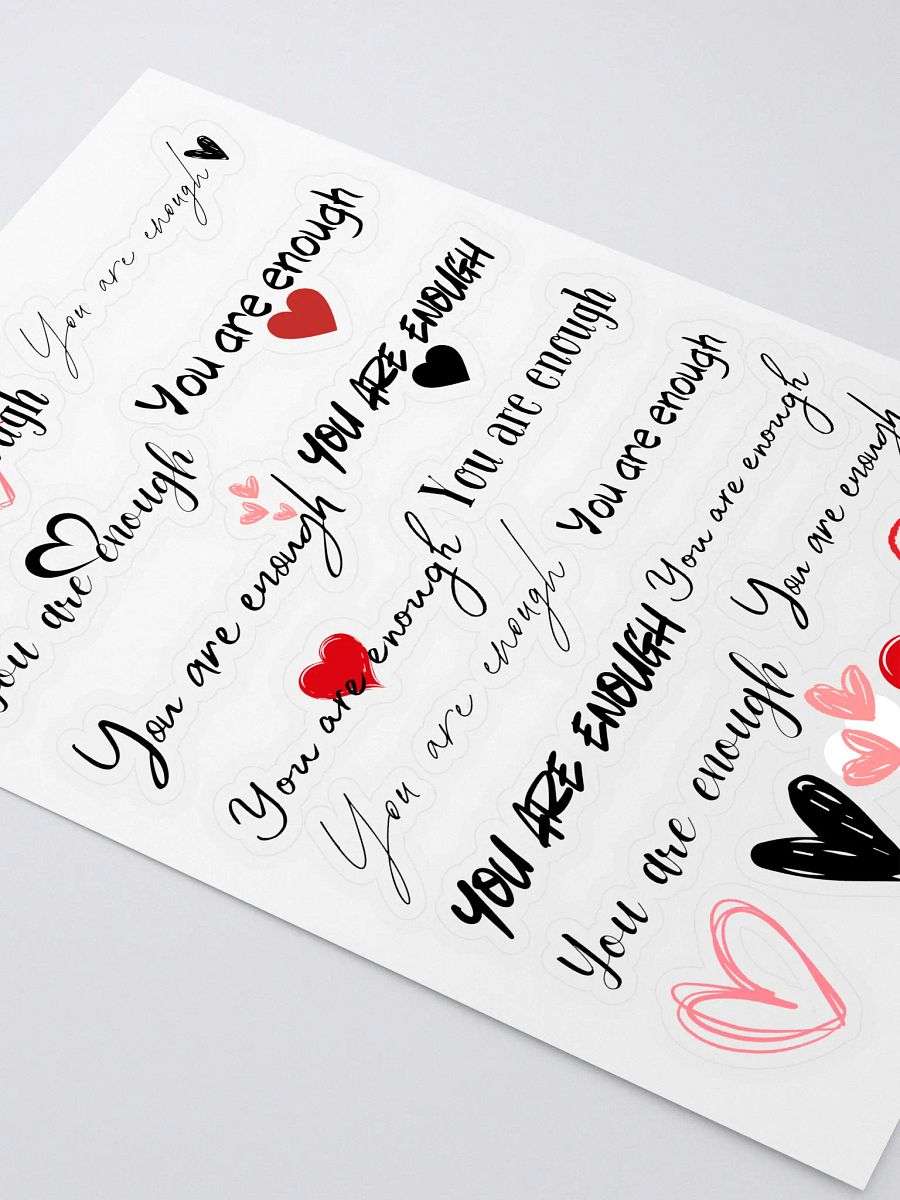 You are enough
You are enough
YOU ARE ENOUGH
You are enough
ugh
ou are enough
You are enough
You are enough
You are enough
You are enough
You are enough
You are enough
YOU ARE ENOUGH
You are enough